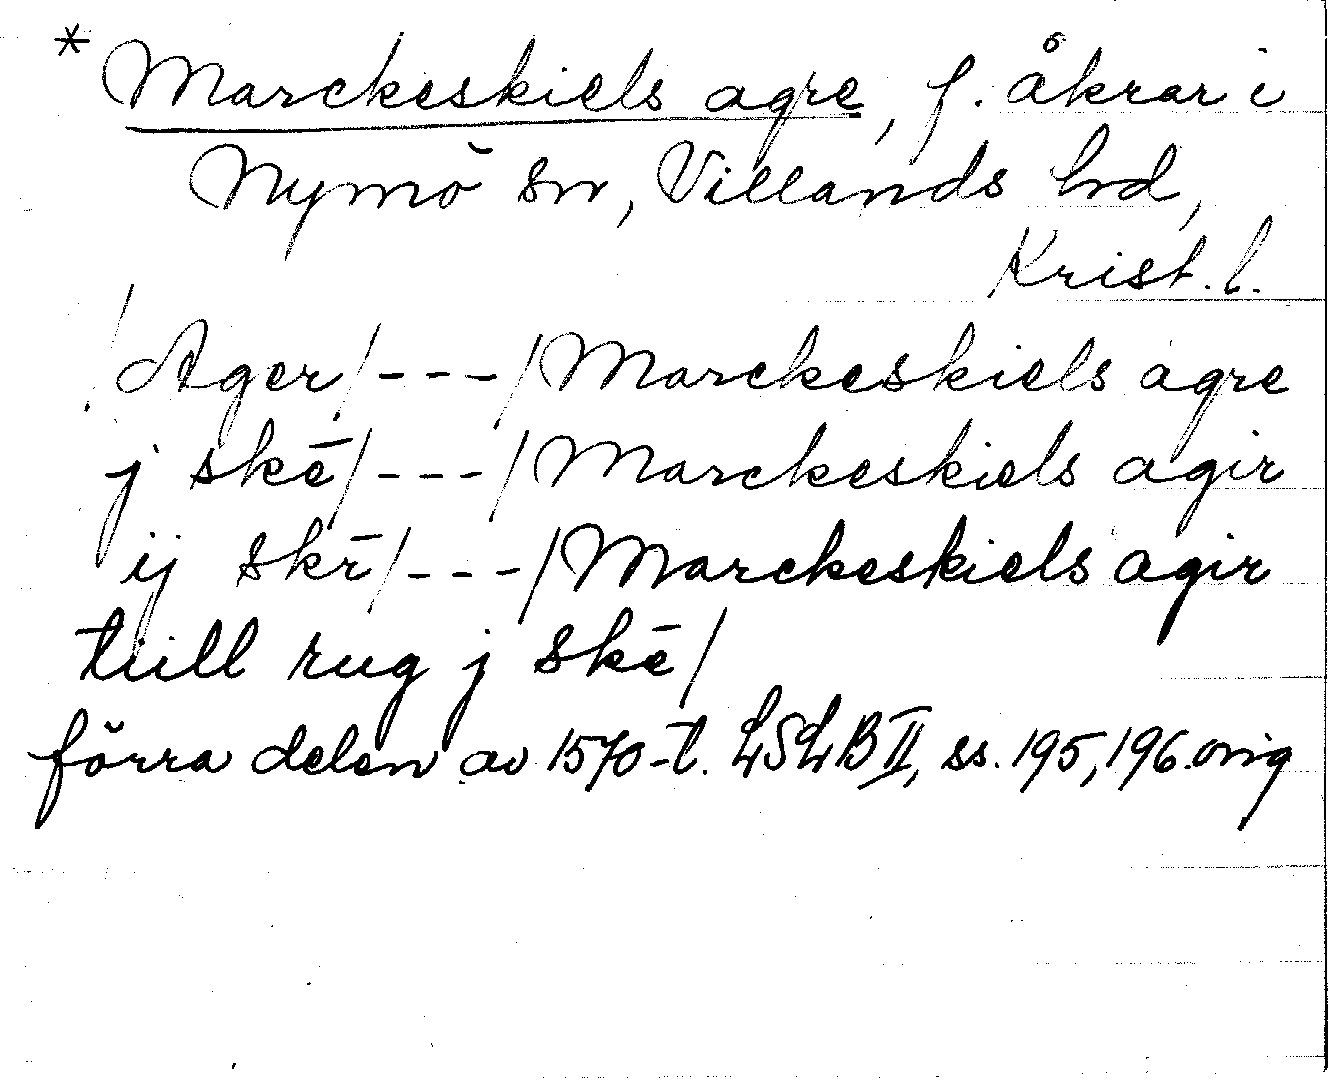 * Marckeskiels agre, f. åkrar i
Nymö sn, Villands hd,
Krist. l.
/Ager/---/Marckeskiels agre
j skē/---/Marckeskiels agir
ij skē/---/Marckeskiels agir
tiill rug j skē/
förra delen av 1570-t. LSLB II, ss. 195, 196. orig